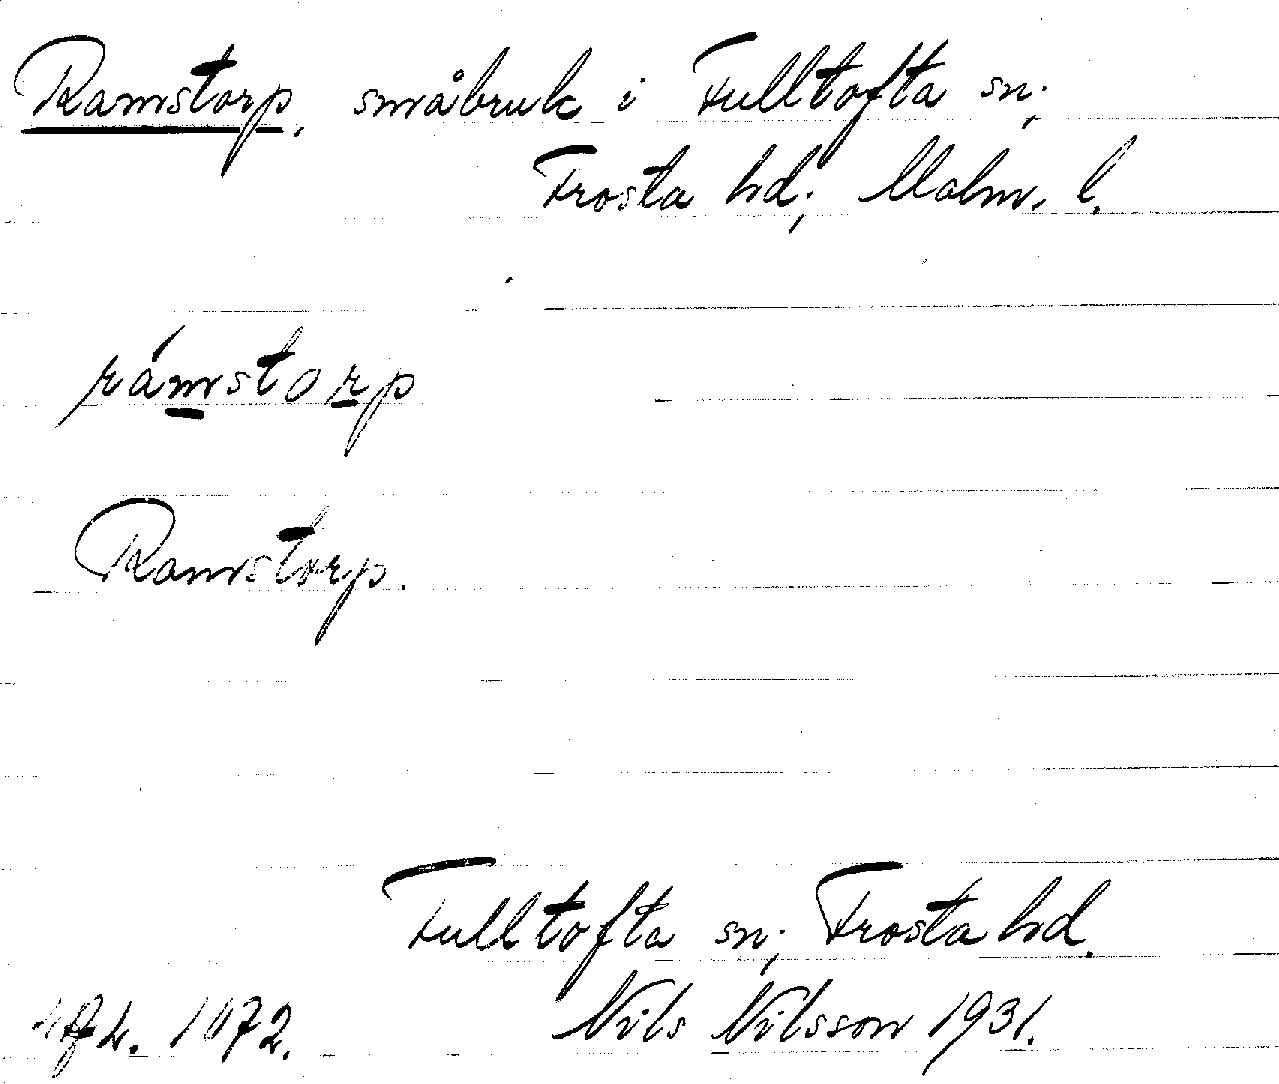 Ramstorp, småbruk i Fulltofta sn;
Frosta hd; Malm. l.
rámstorp
Ramstorp.
Fulltofta sn; Frosta hd.
1072. Nils Nilsson 1931.